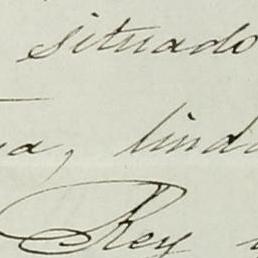 situado
a, linda
Rey